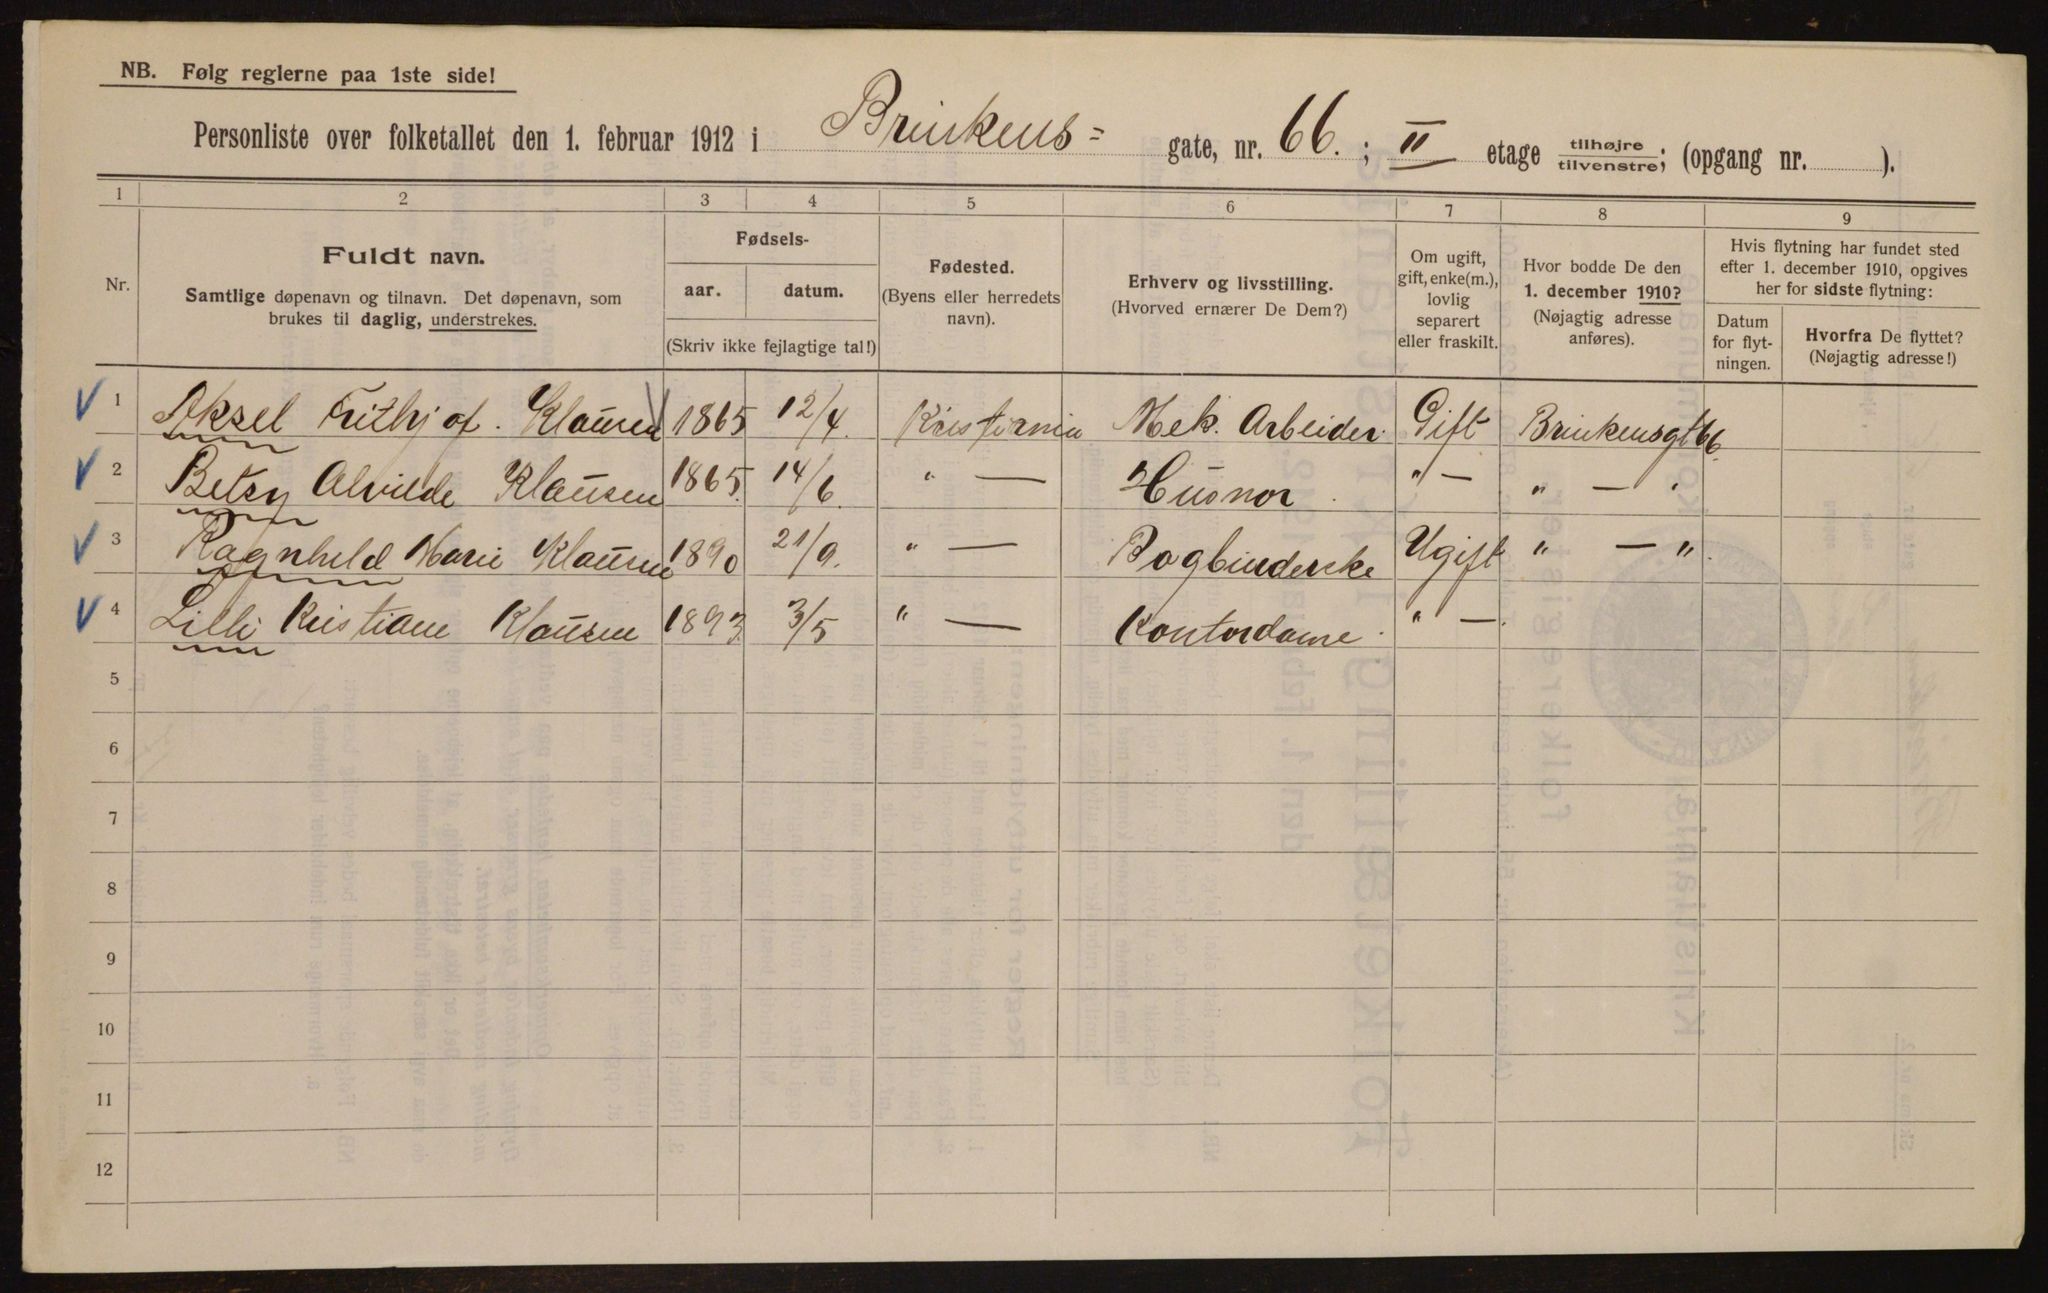 NB. Følg reglerne paa 1ste side!
Personliste over folketallet den 1. februar 1912 i Brinkens= gate, nr. 66. ; II etage tilhøjre/tilvenstre; (opgang nr. ).
1 2 3 4 5 6 7 8 9
Nr.
Fuldt navn.
Samtlige døpenavn og tilnavn. Det døpenavn, som
brukes til daglig, understrekes.
Fødsels-
aar. datum.
(Skriv ikke fejlagtige tal!)
Fødested.
(Byens eller herredets
navn).
Erhverv og livsstilling.
(Hvorved ernærer De Dem?)
Om ugift,
gift, enke(m.),
lovlig
separert
eller fraskilt.
Hvor bodde De den
1. december 1910?
(Nøjagtig adresse
anføres).
Hvis flytning har fundet sted
efter 1. december 1910, opgives
her for sidste flytning:
Datum
for flyt-
ningen.
Hvorfra De flyttet?
(Nøjagtig adresse!)
1 Aksel Frithjof. Klausen 1865 12/4. Kristiania Mek. Arbeider. Gift Brinkensgt 66.
2 Betsy Alvilde Klausen 1865. 14/6. " — Husmor. " — " — "
3 Ragnhild Marie Klausen 1890 21/9. " — Bogbinderske Ugift " — ".
4 Lilli Kristiane Klausen 1893 3/5 " — Kontordame. " —.
5
6
7
8
9
10
11
12